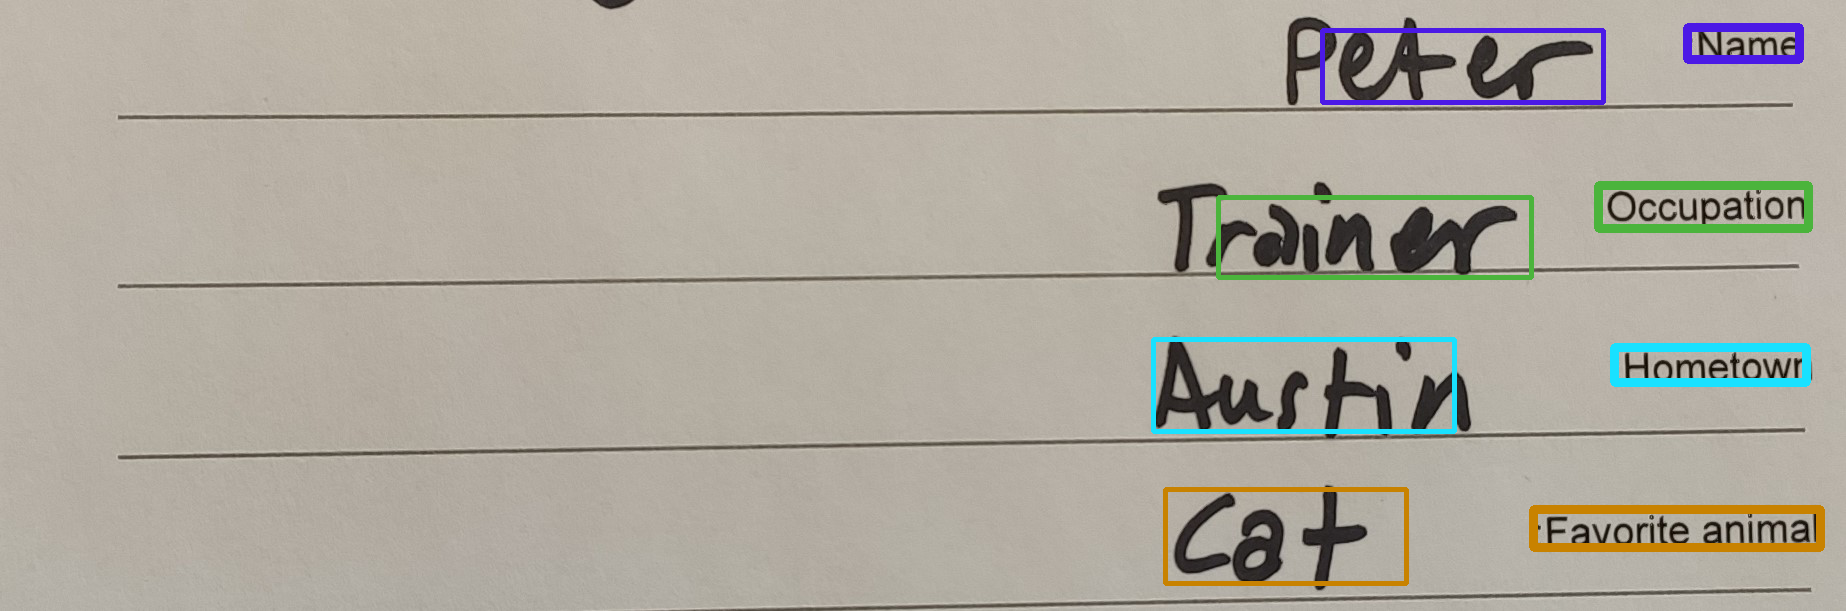 Peter Name
Trainer Occupation
Austin Hometown
Cat Favorite animal